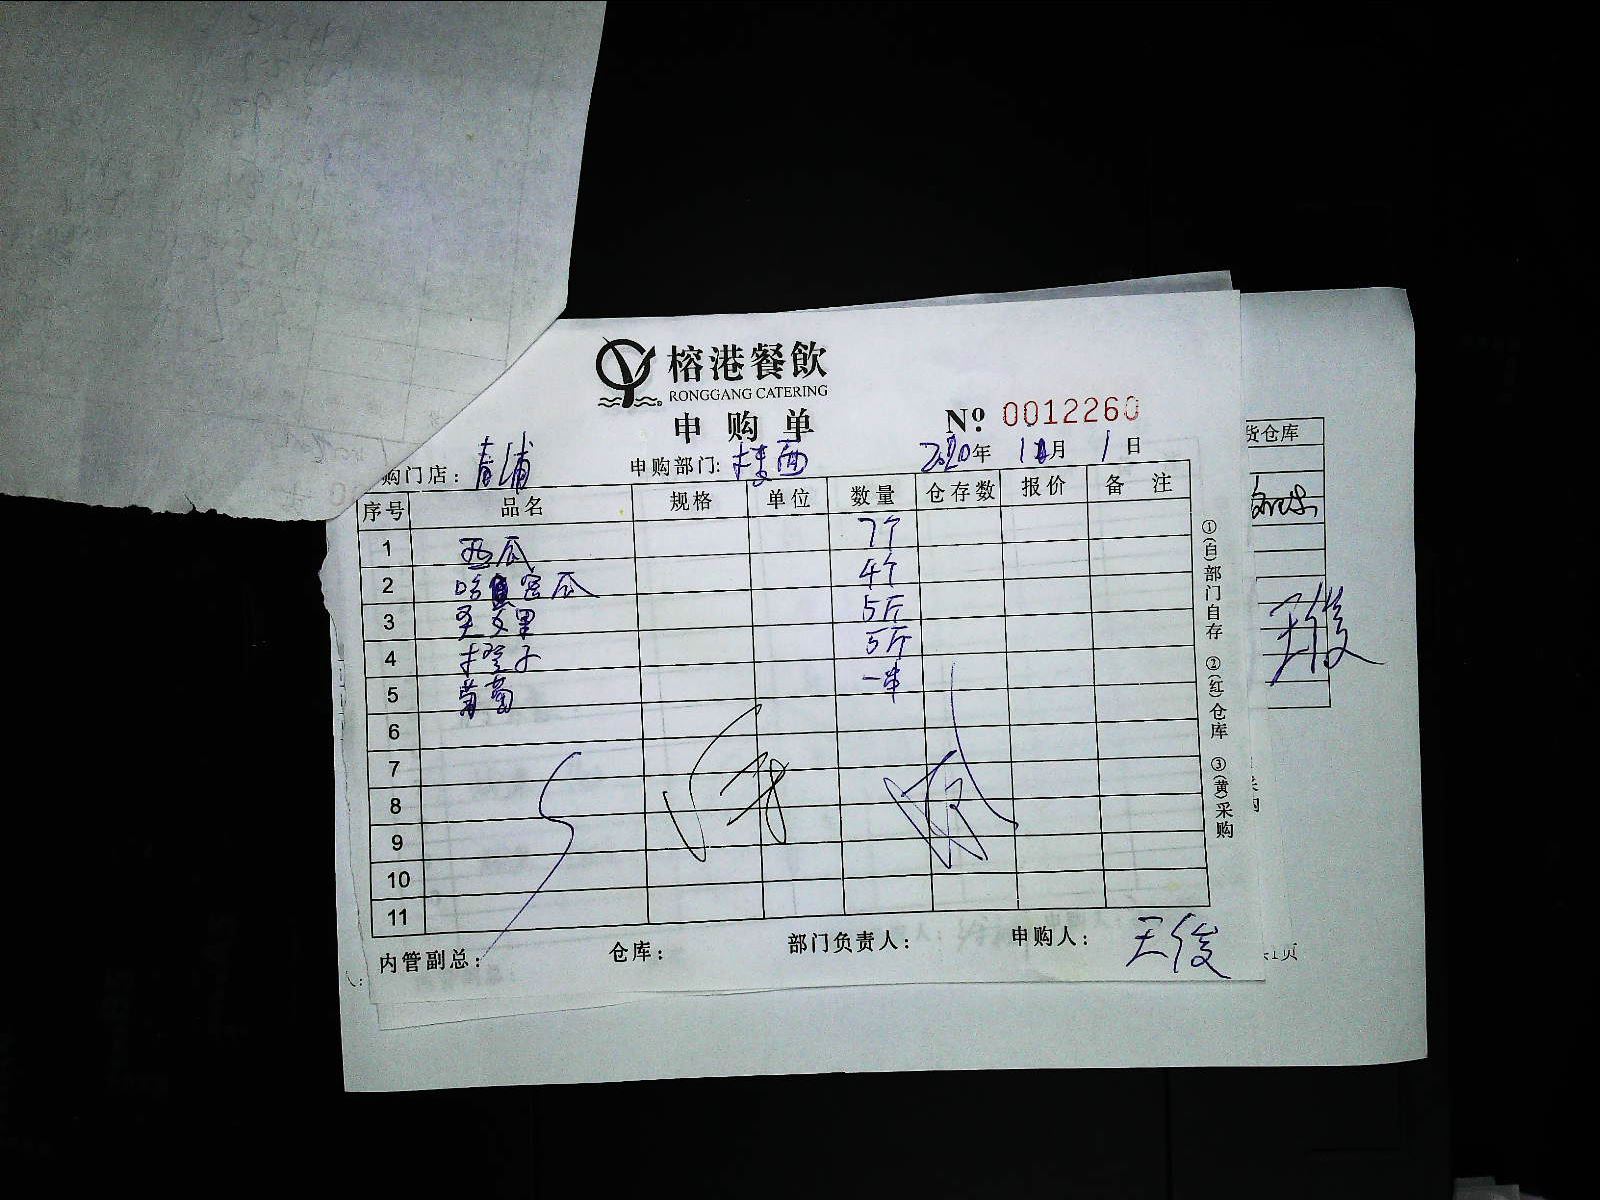 榕港餐飲
RONGGANG CATERING
申购单
Nº 0012260
购门店：青浦 申购部门：楼面 2020年 月1日
序号 品名 规格 单位 数量 仓存数 报价 备注
1 西瓜 7个
2 哈密瓜 4个
3 圣女果 5斤
4 橙子 5斤
5 葡萄 一串
6
7
8
9
10
11
内管副总： 仓库： 部门负责人： 申购人：王俊
①(白)部门自存 ②(红)仓库 ③(黄)采购
货仓库
王俊
采购
共1页